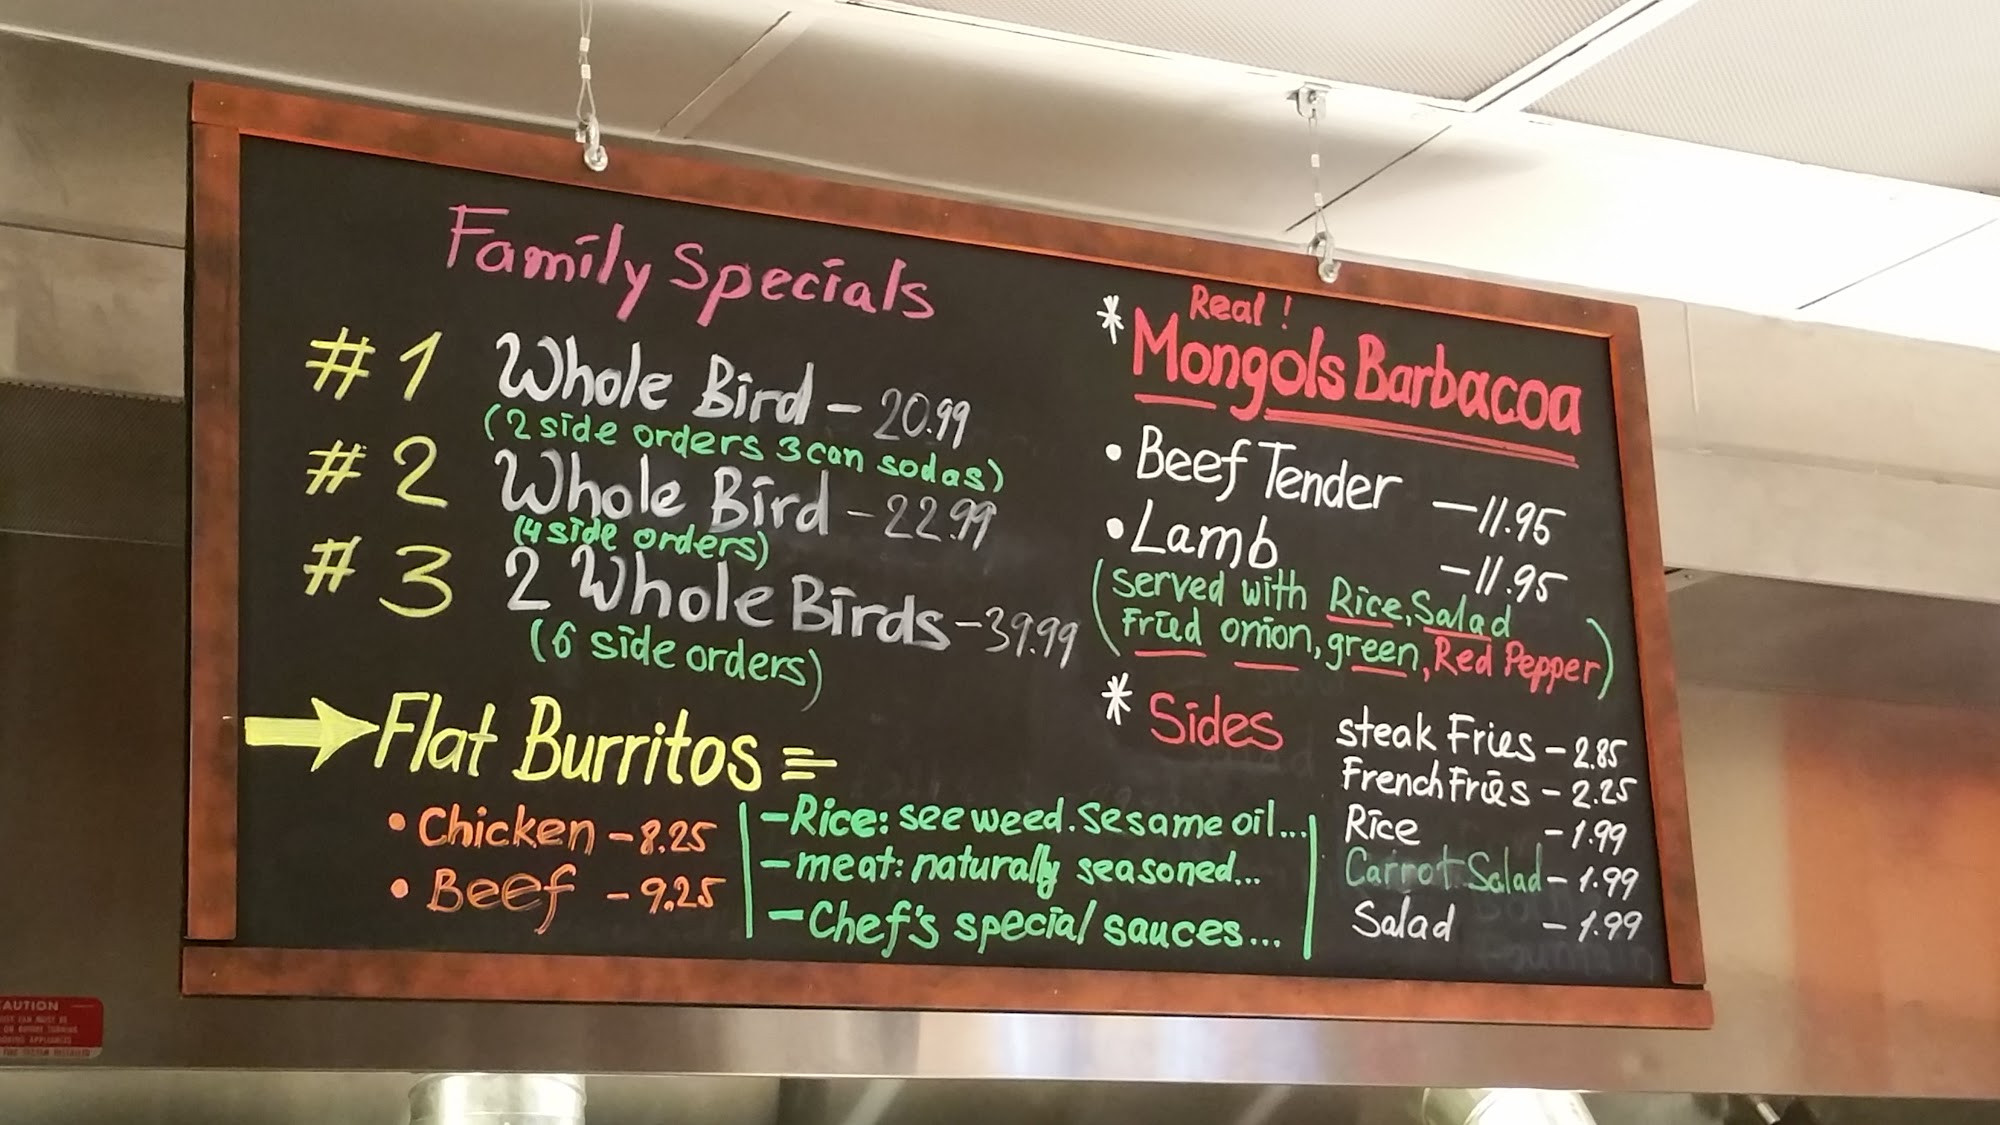 Family Specials
#1 Whole Bird - 20.99
(2 side orders 3 can sodas)
#2 Whole Bird - 22.99
(4 side orders)
#3 2 Whole Birds - 39.99
(6 side orders)
Flat Burritos =
• Chicken - 8.25
• Beef - 9.25
- Rice: see weed. sesame oil...
- meat: naturally seasoned...
- Chef's special sauces...
* Real!
Mongols Barbacoa
• Beef Tender - 11.95
• Lamb - 11.95
(served with Rice, Salad
Fried onion, green, Red Pepper)
* Sides
steak Fries - 2.85
French Fries - 2.25
Rice - 1.99
Carrot Salad - 1.99
Salad - 1.99
Fountain
CAUTION